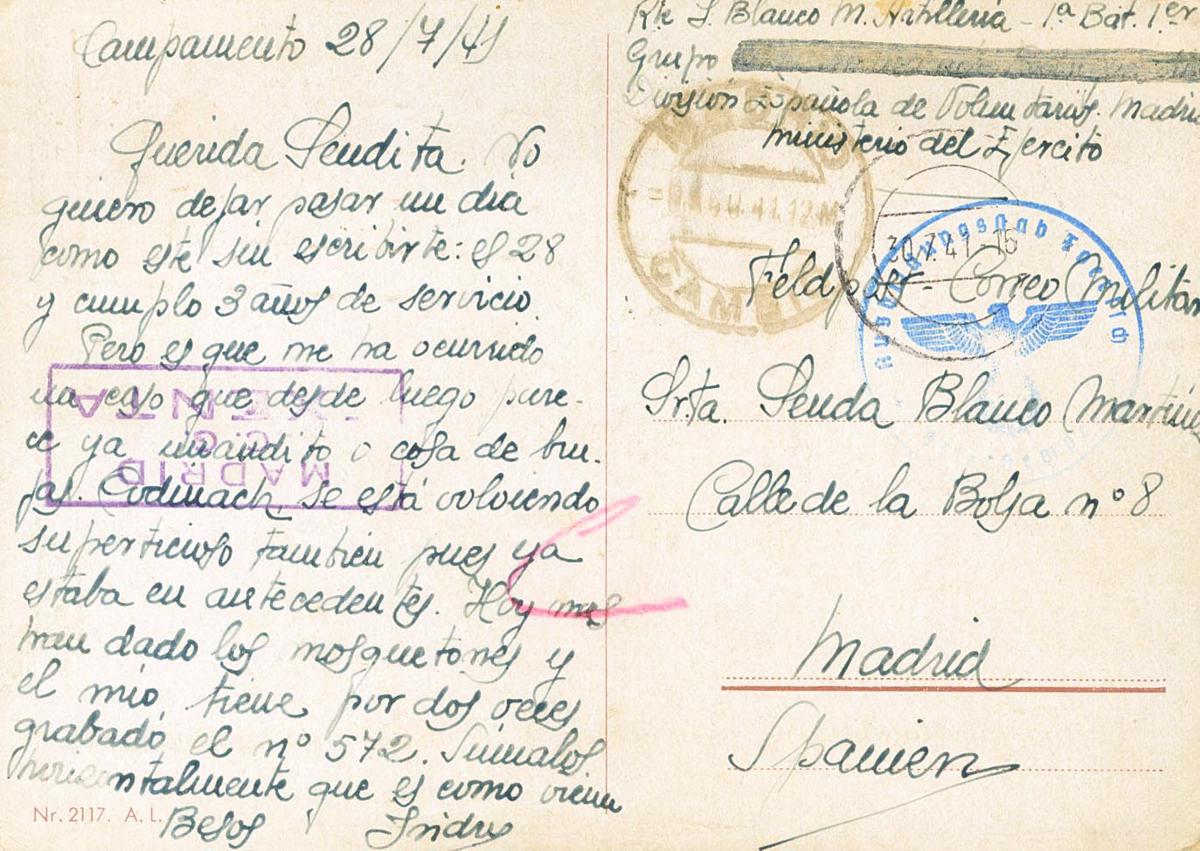 Campamento 28/7/41
Querida Sendita. No
quiero dejar pasar un dia
como este sin escribirte: el 28
y cumplo 3 años de servicio.
Pero es que me ha ocurrido
un caso que desde luego pare-
ce ya inaudito o cosa de bru-
jas. se está volviendo
superticioso tambien pues ya
estaba en antecedentes. Hoy nos
han dado los mosquetones y
el mio tiene por dos veces
grabado el nº 572. Súmalos
horizontalmente que es como viene
Besos Isidro
Nr. 2117. A. L.
MADRID
Rte S. Blanco M. Artillería - 1ª Bat. 1er
Grupo
División Española de Voluntarios. Madri
Ministerio del Ejercito
30.7.41-16
Feldpost - Correo Militar
Srta. Senda Blanco Martíne
Calle de la Bolsa nº 8
Madrid
Spanien